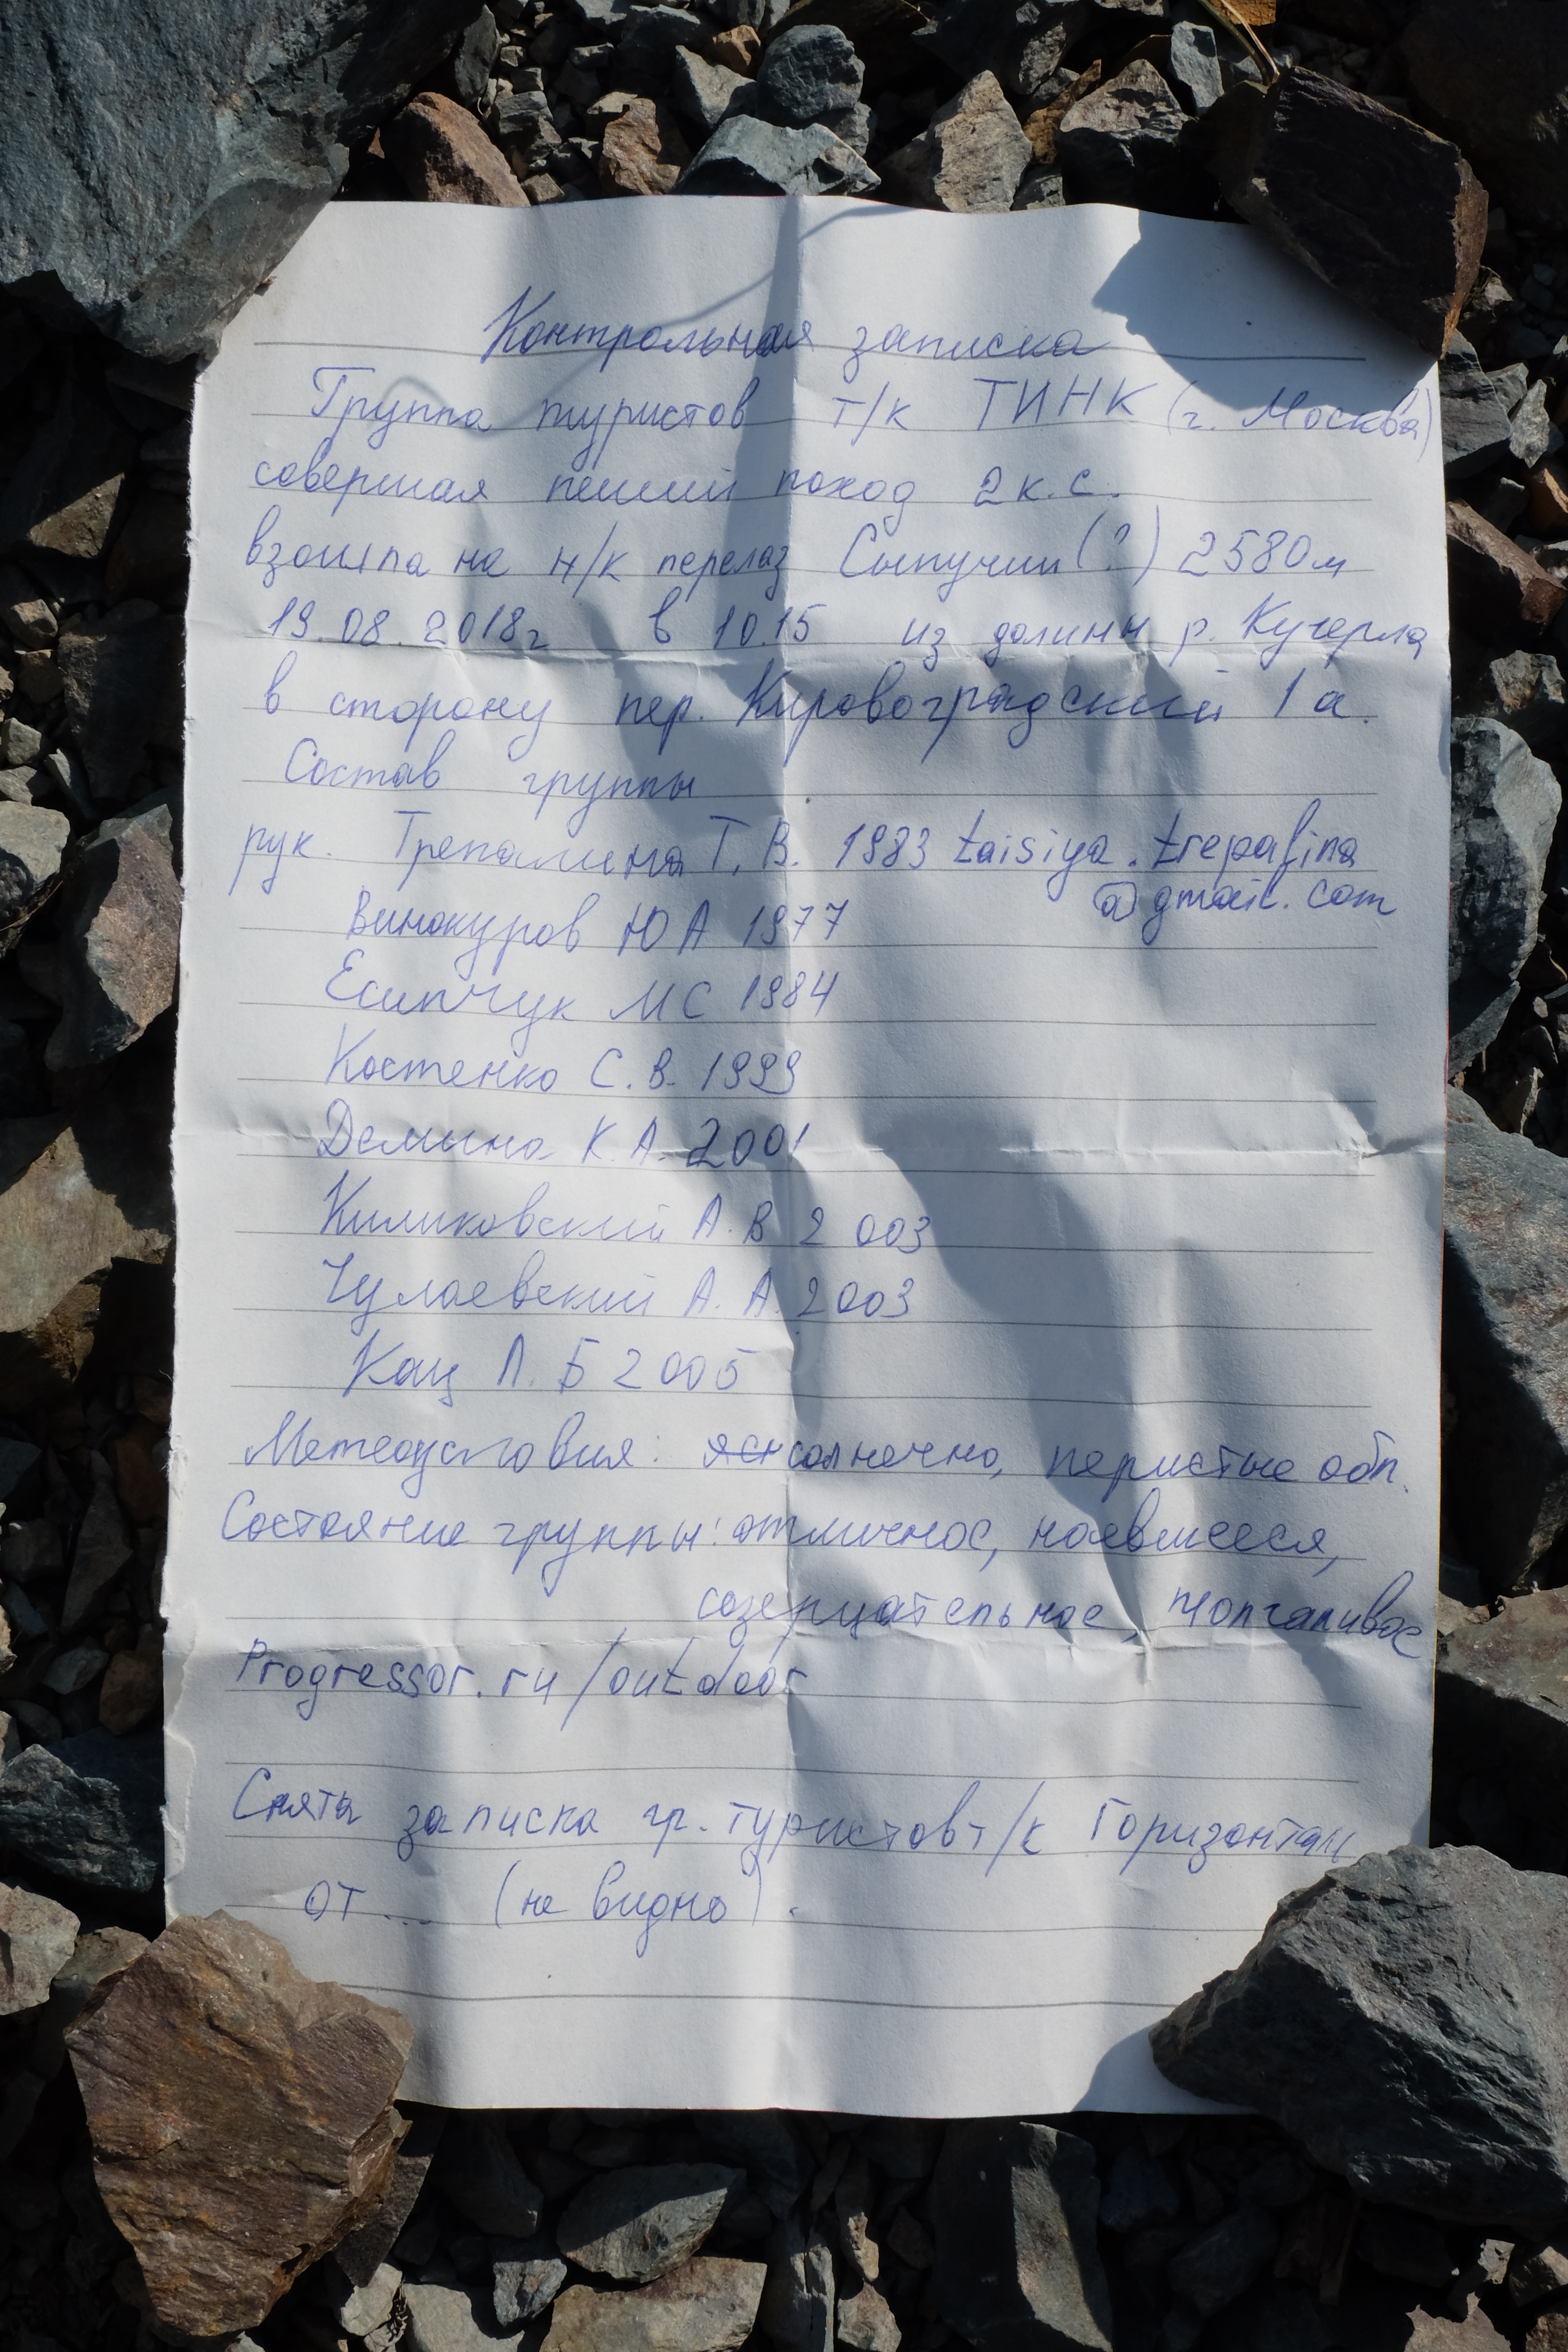 Контрольная записка
Группа туристов т/к ТИНК (г. Москва)
совершая пеший поход 2 к.с.
взошла на н/к перелаз Сыпучий (?) 2580м
19.08.2018г в 10.15 из долины р. Кучерла
в сторону пер. Кировоградский 1а.
Состав группы
рук. Трепалина Т.В. 1983 taisiya.trepalina
@gmail.com
Винокуров Ю А 1977
Есипчук МС 1984
Костенко С.В. 1999
Демина К.А. 2001
Климковский А.В 2003
Чулаевский А.А. 2003
Кац Л.Б 2005
Метеоусловия: ясн солнечно, перистые обл.
Состояние группы: отличное, наевшееся,
созерцательное,
Progressor.ru/outdoor
Снята записка гр. туристов т/к Горизонталь
от ... (не видно).